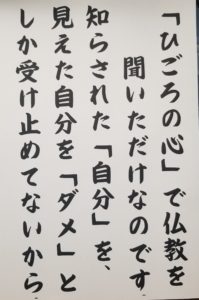 「ひごろの心」で仏教を
聞いただけなのです
知らされた「自分」を、
見えた自分を「ダメ」と
しか受け止めてないから、